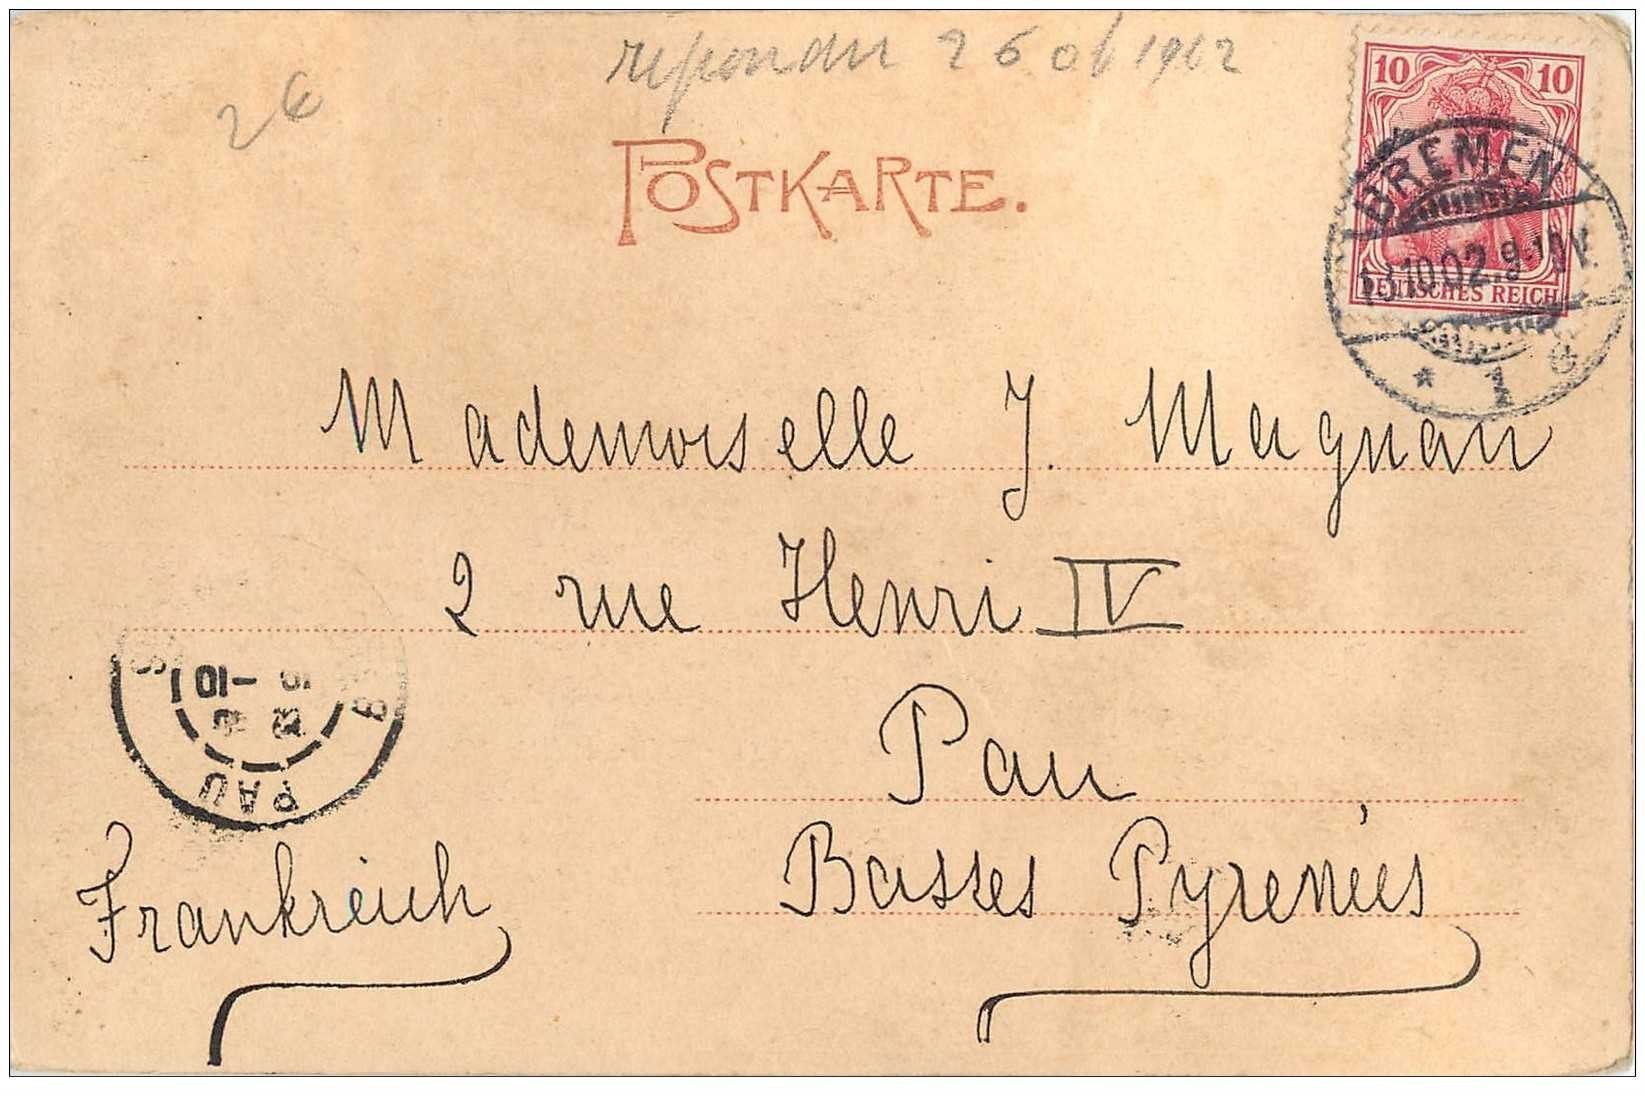 repondu 26 oct 1902
2€
POSTKARTE.
10 10
DEUTSCHES REICH
BREMEN
13.10.02.9-10V.
* 1 d
Mademoiselle J. Magnan
2 rue Henri IV
Pau
Basses Pyrenées
Frankreich
PAU
10